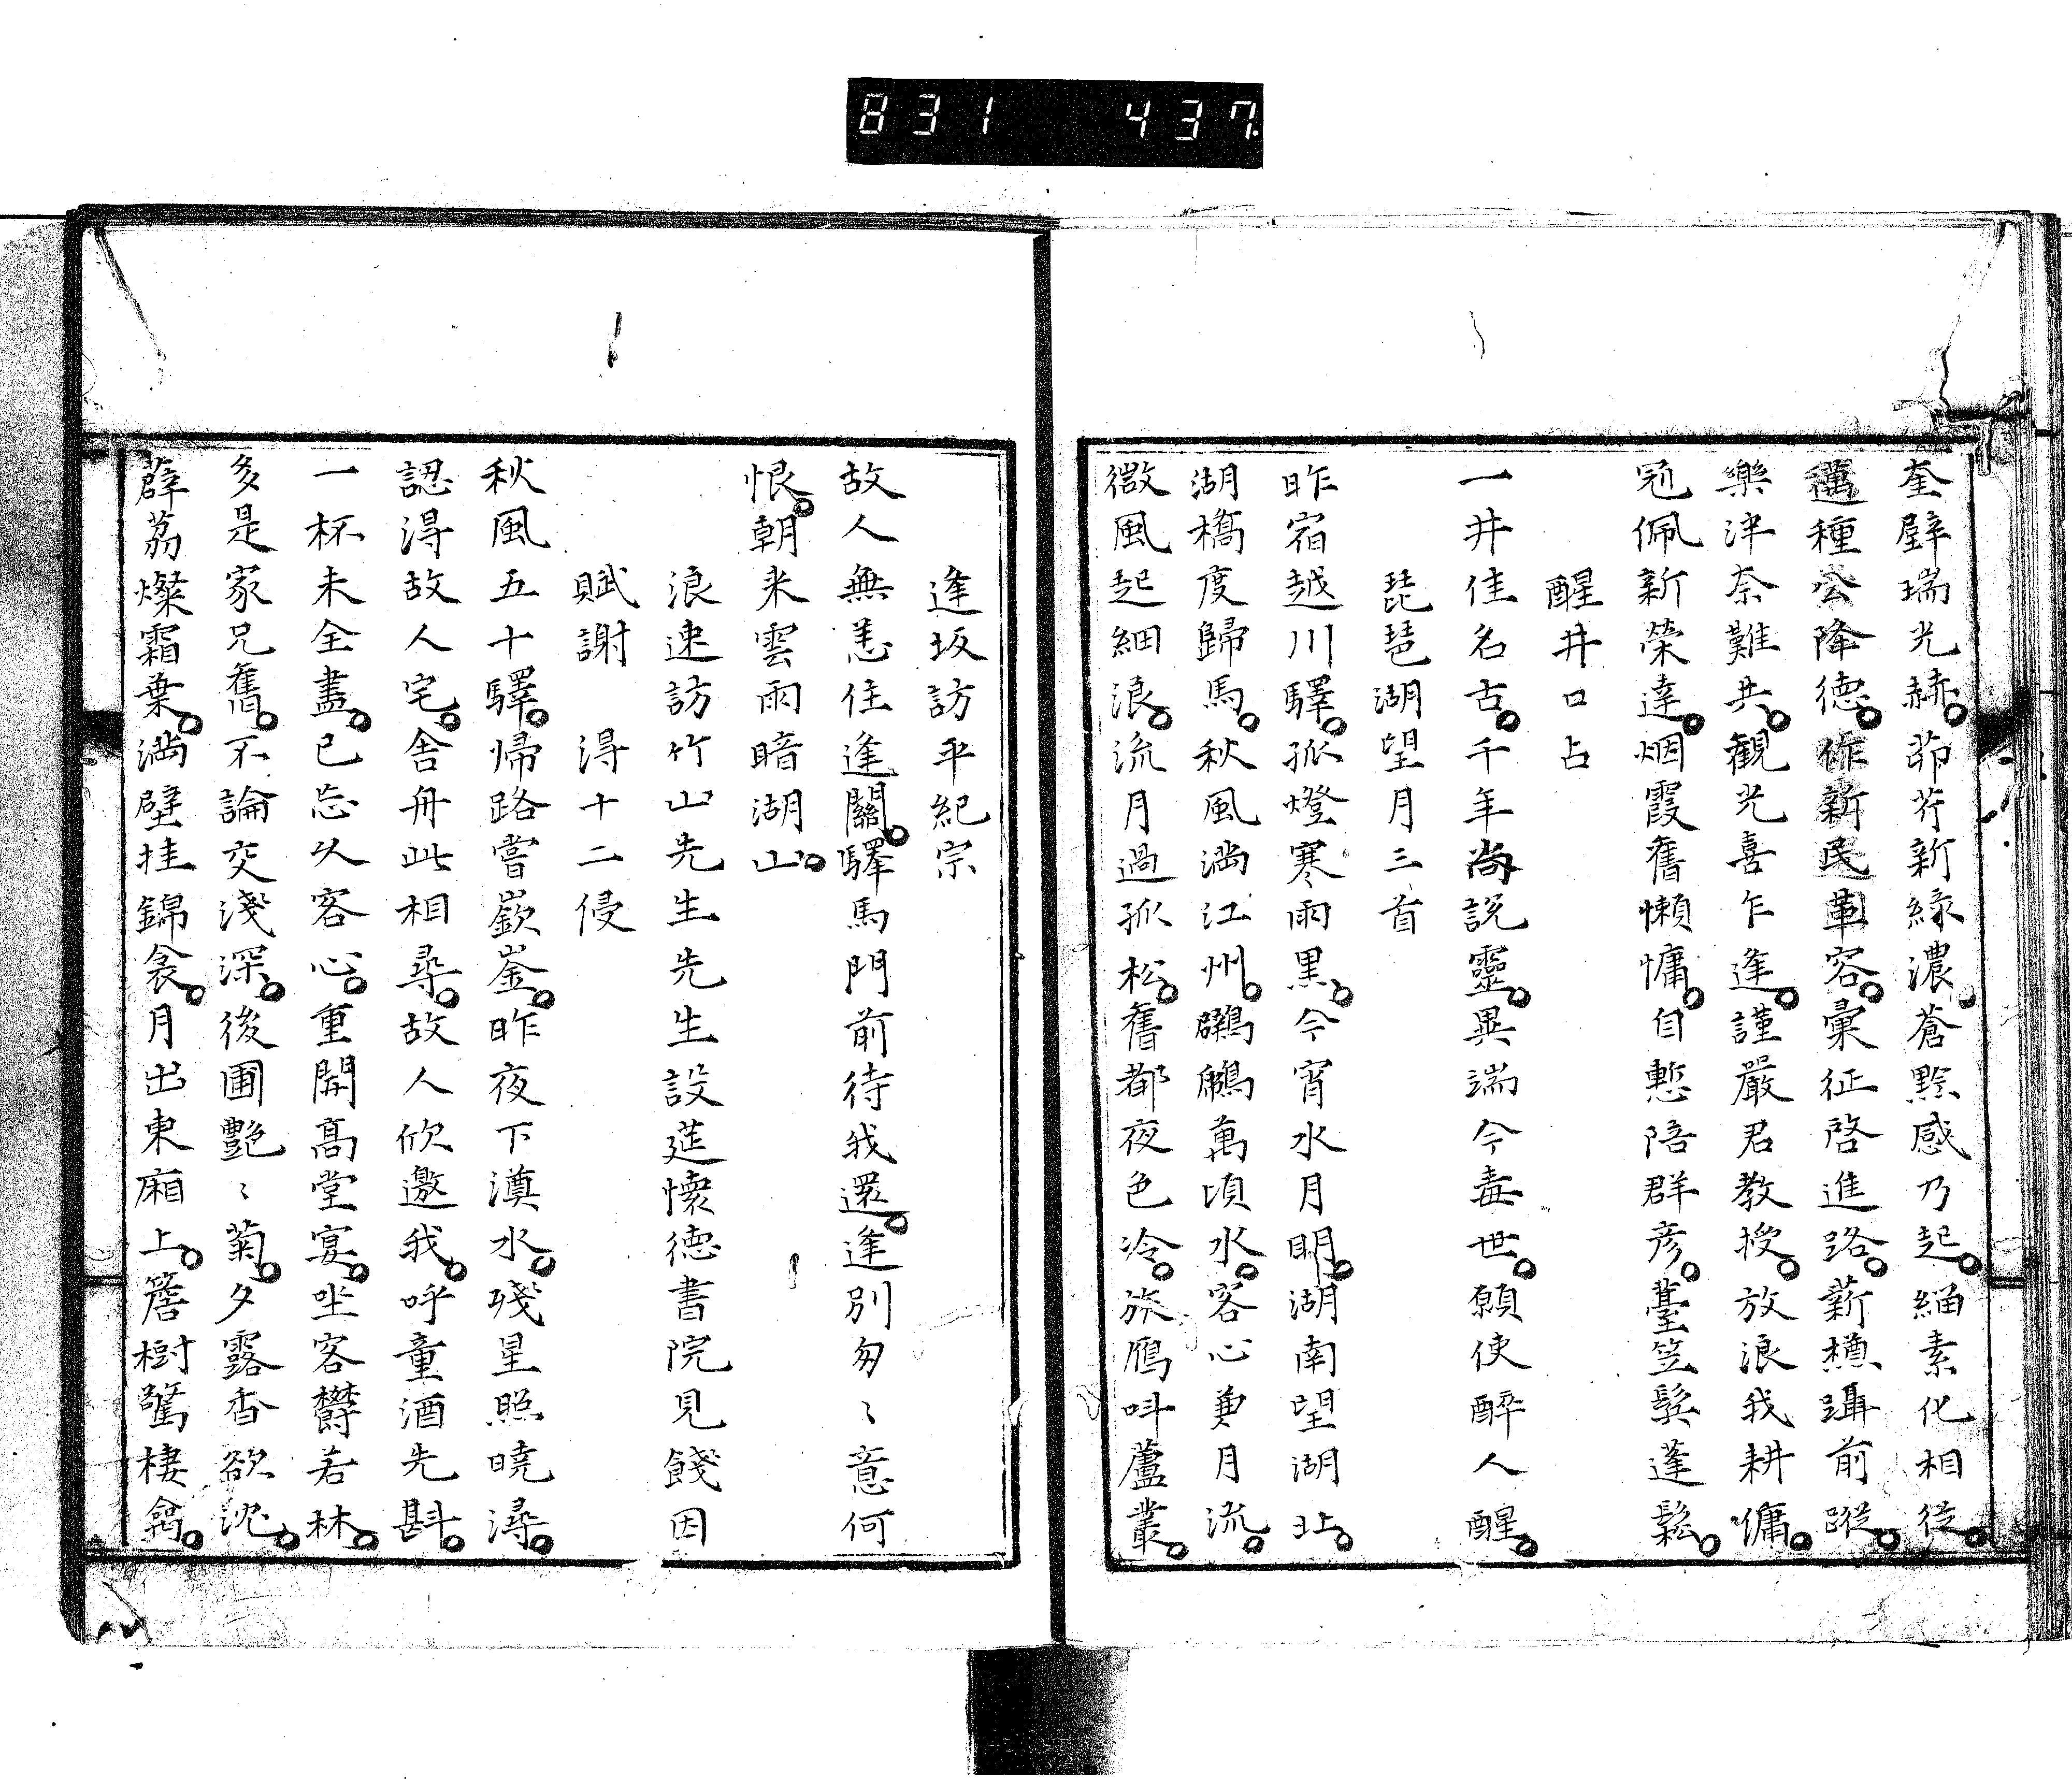 831 437
奎壁瑞光赫茆芹新綠濃蒼黔感乃起緇素化相從
邁種公降德作新民革容彙征啓進路薪樵躡前蹤
樂泮奈難共觀光喜乍逢謹嚴君教授放浪我耕傭
冠佩新榮達烟霞舊懶慵自慙陪群彦臺笠鬂蓬鬆
醒井口占
一井佳名古千年尚説靈異端今毒世願使醉人醒
琵琶湖望月三首
昨宿越川驛孤燈寒雨黑今宵水月明湖南望湖北
湖橋度歸馬秋風満江州鸊鵜萬頃水客心兼月流
微風起細浪流月過孤松舊都夜色冷旅鴈叫蘆叢
逢坂訪平紀宗
故人無恙住逢關驛馬門前待我還逢別匆〻意何
恨朝来雲雨暗湖山
浪速訪竹山先生先生設莚懷德書院見餞因
賦謝　得十二侵
秋風五十驛帰路嘗嶔崟昨夜下澱水殘星照曉潯
認得故人宅舎舟此相尋故人欣邀我呼童酒先斟
一杯未全盡已忘久客心重開髙堂宴坐客欝若林
多是家兄舊不論交淺深後圃艷〻菊夕露香欲沈
薜荔燦霜葉満壁挂錦衾月出東廂上簷樹驚棲禽